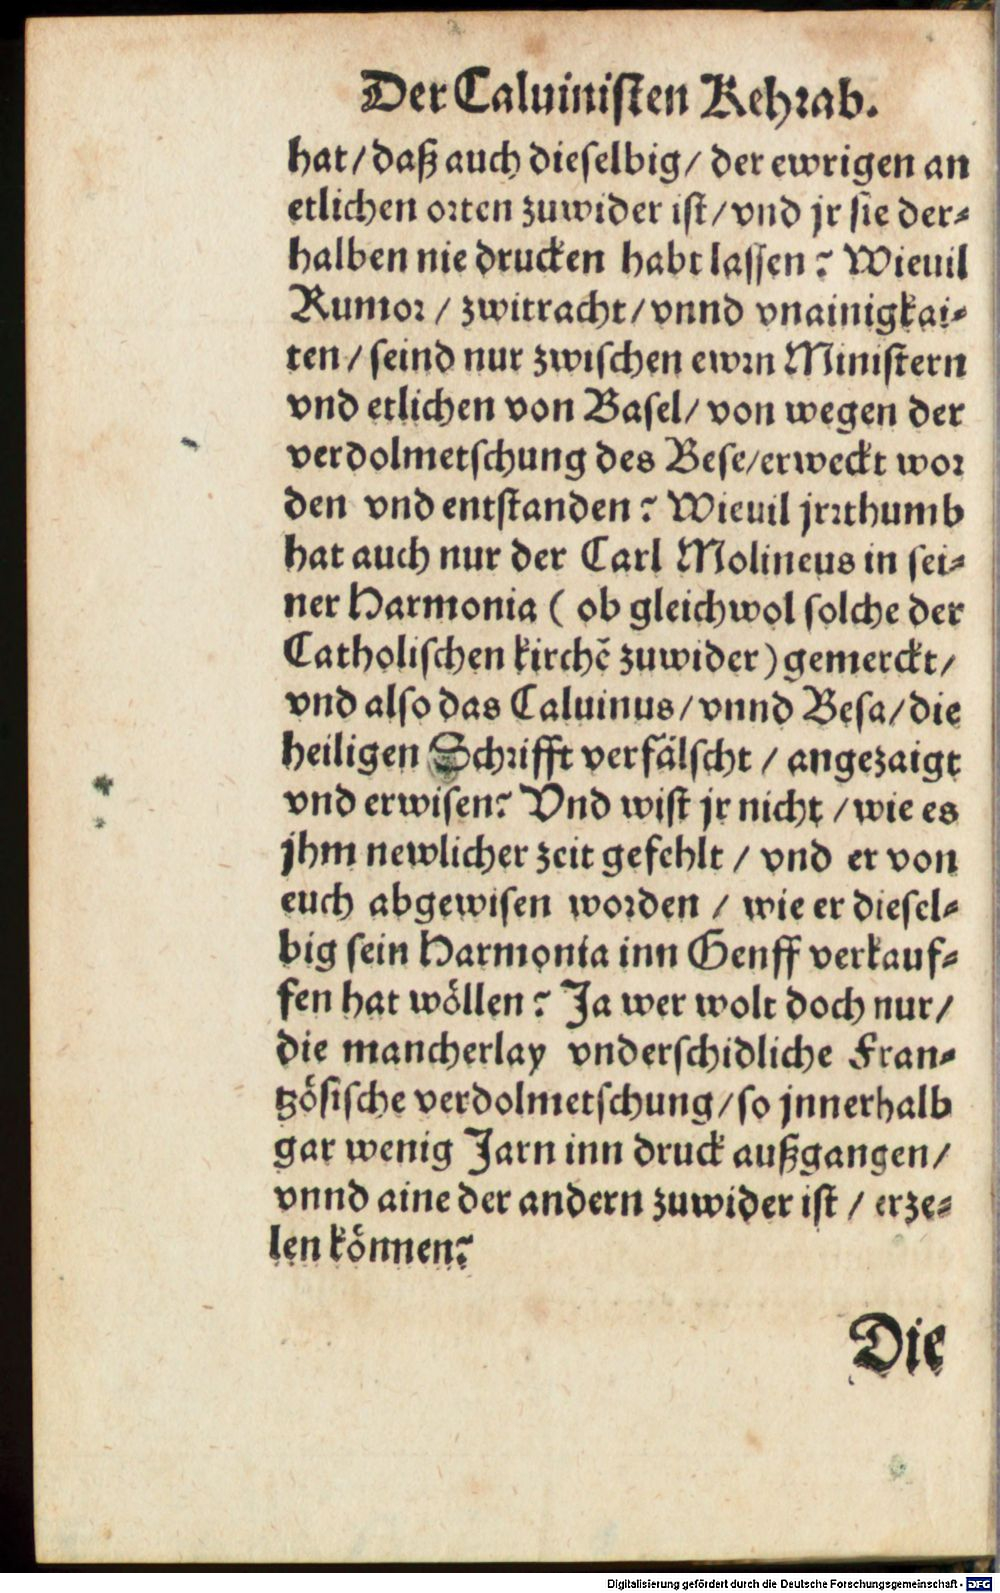 Der Caluinisten Kehrab.
hat/ daß auch dieselbig/ der ewrigen an
etlichen orten zuwider ist/ vnd jr sie der⸗
halben nie drucken habt lassen? Wieuil
Rumor/ zwitracht/ vnnd vnainigkai⸗
ten/ seind nur zwischen ewrn Ministern
vnd etlichen von Basel/ von wegen der
verdolmetschung des Bese/ erweckt wor
den vnd entstanden? Wieuil jrrthumb
hat auch nur der Carl Molineus in sei⸗
ner Harmonia ( ob gleichwol solche der
Catholischen kirchẽ zuwider) gemerckt/
vnd also das Caluinus/ vnnd Besa/ die
heiligen Schrifft verfälscht/ angezaigt
vnd erwisen? Vnd wist jr nicht/ wie es
jhm newlicher zeit gefehlt/ vnd er von
euch abgewisen worden/ wie er diesel⸗
big sein Harmonia inn Genff verkauf⸗
fen hat wöllen? Ja wer wolt doch nur/
die mancherlay vnderschidliche Fran⸗
tzösische verdolmetschung/ so jnnerhalb
gar wenig Jarn inn druck außgangen/
vnnd aine der andern zuwider ist/ erze⸗
len können?
Die
Digitalisierung gefördert durch die Deutsche Forschungsgemeinschaft - DFG